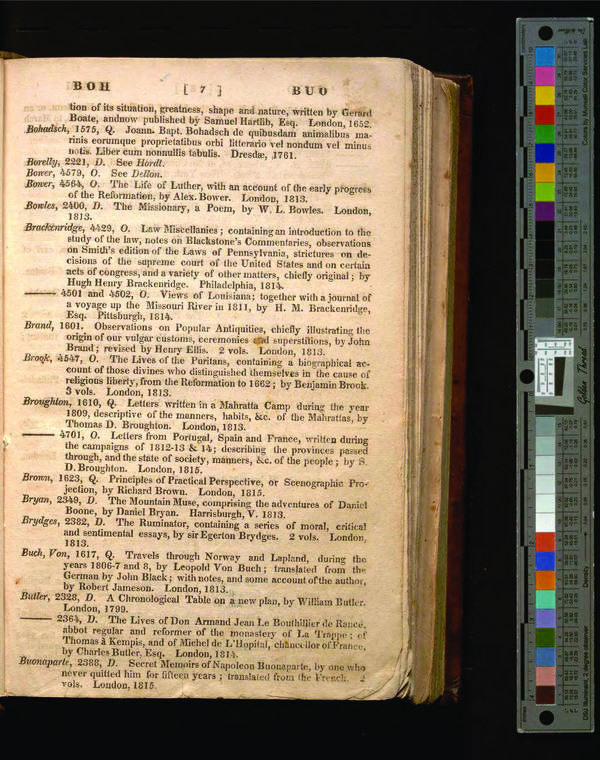 BOH [ 7 ] BUO
tion of its situation, greatness, shape and nature, written by Gerard
Boate, andnow published by Samuel Hartlib, Esq. London, 1652.
Bohadsch, 1575, Q. Joann. Bapt. Bohadsch de quibusdam animalibus ma-
rinis eorumque proprietatibus orbi litterario vel nondum vel minus
notis. Liber cum nonnullis tabulis. Dresdæ, 1761.
Borelly, 2221, D. See Hordt.
Bower, 4579, O. See Dellon.
Bower, 4564, O. The Life of Luther, with an account of the early progress
of the Reformation, by Alex. Bower. London, 1813.
Bowles, 2400, D. The Missionary, a Poem, by W. L. Bowles. London,
1813.
Brackenridge, 4429, O. Law Miscellanies; containing an introduction to the
study of the law, notes on Blackstone's Commentaries, observations
on Smith's edition of the Laws of Pennsylvania, strictures on de-
cisions of the supreme court of the United States and on certain
acts of congress, and a variety of other matters, chiefly original; by
Hugh Henry Brackenridge. Philadelphia, 1814.
—— 4501 and 4502, O. Views of Louisiana; together with a journal of
a voyage up the Missouri River in 1811, by H. M. Brackenridge,
Esq. Pittsburgh, 1814.
Brand, 1601. Observations on Popular Antiquities, chiefly illustrating the
origin of our vulgar customs, ceremonies and superstitions, by John
Brand; revised by Henry Ellis. 2 vols. London, 1813.
Brook, 4547, O. The Lives of the Puritans, containing a biographical ac-
count of those divines who distinguished themselves in the cause of
religious liberty, from the Reformation to 1662; by Benjamin Brook.
3 vols. London, 1813.
Broughton, 1610, Q. Letters written in a Mahratta Camp during the year
1809, descriptive of the manners, habits, &c. of the Mahrattas, by
Thomas D. Broughton. London, 1813.
—— 4701, O. Letters from Portugal, Spain and France, written during
the campaigns of 1812-13 & 14; describing the provinces passed
through, and the state of society, manners, &c. of the people; by S.
D. Broughton. London, 1815.
Brown, 1623, Q. Principles of Practical Perspective, or Scenographic Pro-
jection, by Richard Brown. London, 1815.
Bryan, 2349, D. The Mountain Muse, comprising the adventures of Daniel
Boone, by Daniel Bryan. Harrisburgh, V. 1813.
Brydges, 2382, D. The Ruminator, containing a series of moral, critical
and sentimental essays, by sir Egerton Brydges. 2 vols. London,
1813.
Buch, Von, 1617, Q. Travels through Norway and Lapland, during the
years 1806-7 and 8, by Leopold Von Buch; translated from the
German by John Black; with notes, and some account of the author,
by Robert Jameson. London, 1813.
Butler, 2328, D. A Chronological Table on a new plan, by William Butler.
London, 1799.
—— 2364, D. The Lives of Don Armand Jean Le Bouthillier de Rancé,
abbot regular and reformer of the monastery of La Trappe; of
Thomas à Kempis, and of Michel de L'Hopital, chancellor of France,
by Charles Butler, Esq. London, 1814.
Buonaparte, 2388, D. Secret Memoirs of Napoleon Buonaparte, by one who
never quitted him for fifteen years; translated from the French. 2
vols. London, 1815.
Golden Thread
Density